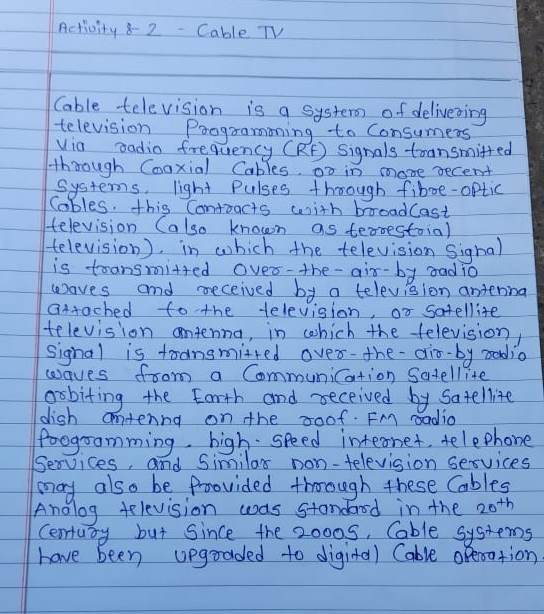 Activity 8-2 - Cable TV
Cable television is a system of delivering
television Programming to Consumers
Via radio frequency (RF) Signals transmitted
through Coaxial Cables. or in more recent
Systems. light Pulses through fibre-optic
Cables. this Contracts with broadCast
television (also known as terrestrial
television). in which the television Signal
is transmitted over-the-air-by radio
waves and received by a television antenna
attached to the television, or satellite
television antenna, in which the television,
Signal is transmitted over-the-air-by radio
waves from a Communication Satellite
orbiting the Earth and received by Satellite
dish antenna on the roof. FM radio
Programming, high-speed internet, telephone
Services, and Similar non-television services
may also be Provided through these Cables
Analog television was standard in the 20th
Century but since the 2000s, Cable systems
have been upgraded to digital Cable operation.